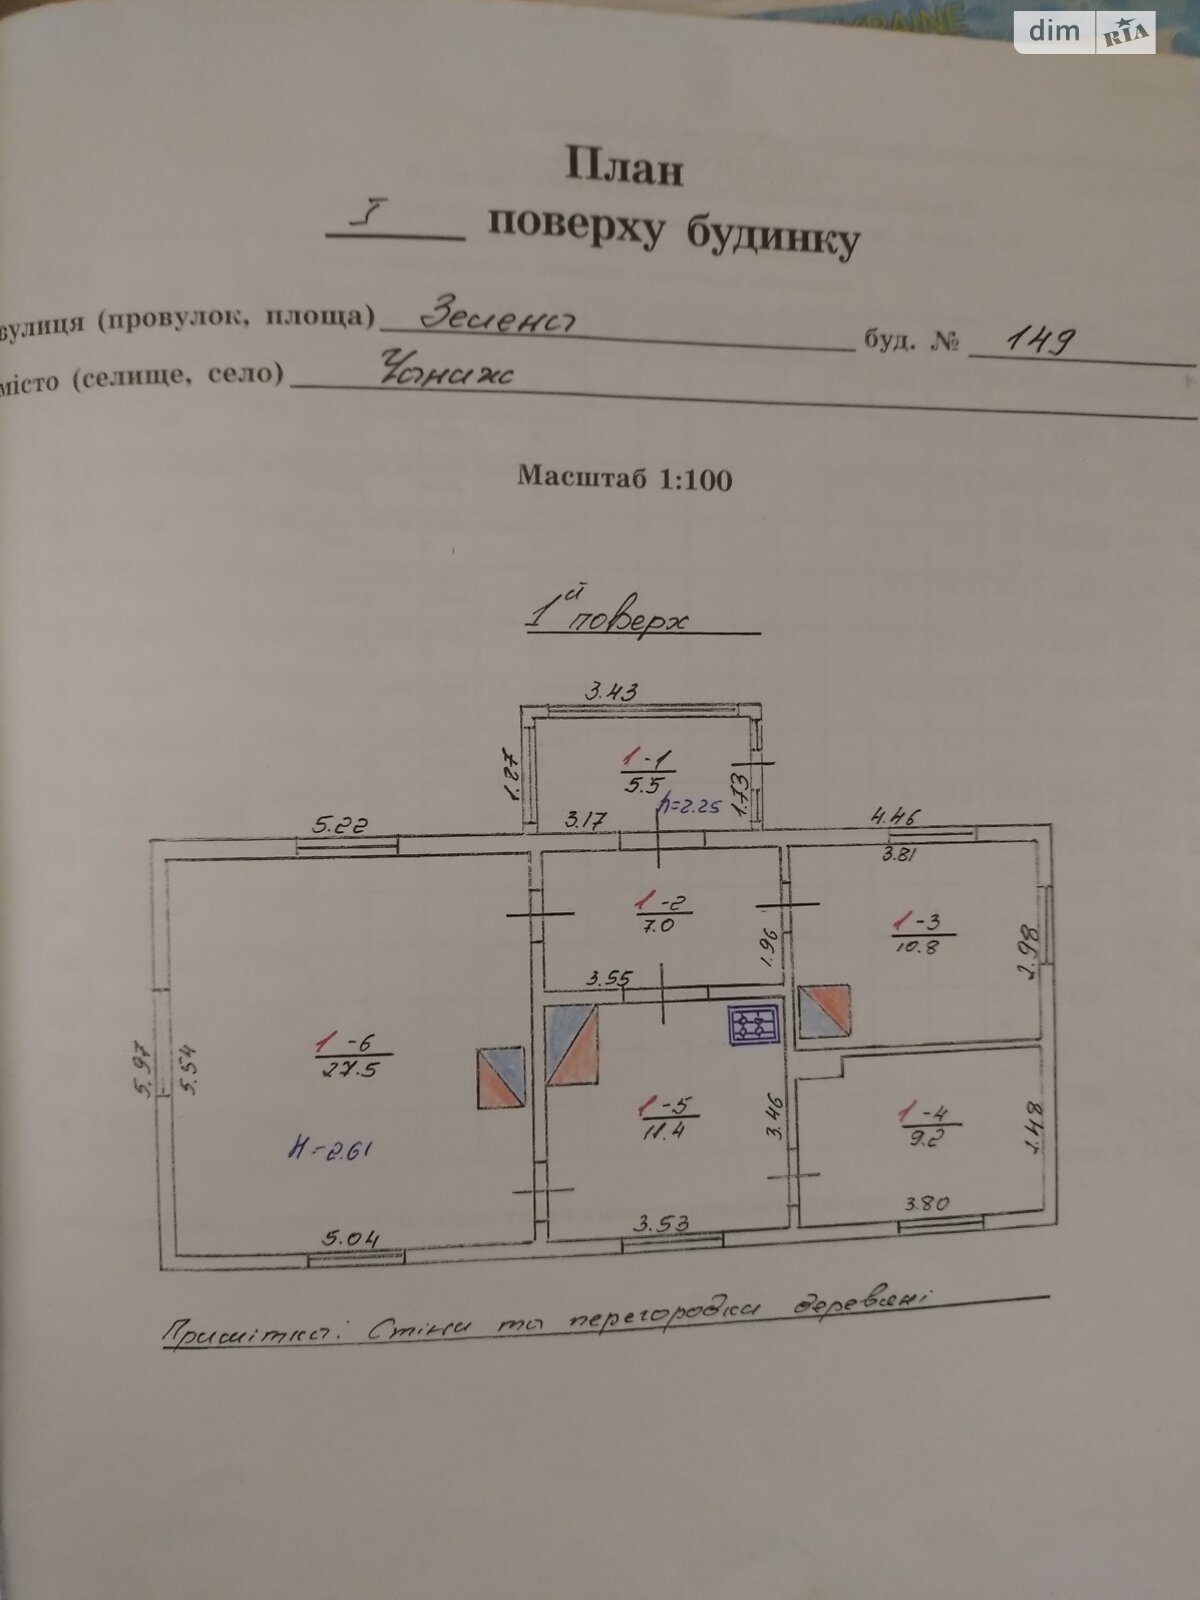 UKRAINE
dim RIA
План
I поверху будинку
вулиця (провулок, площа) Зелена буд. № 149
місто (селище, село) Чаниж
Масштаб 1:100
1й поверх
3.43
1.27
1-1
5.5
1.73
h=2.25
3.17
5.22
4.46
3.81
1-2
7.0
1-3
10.8
1.96
2.98
3.55
5.97
5.54
1-6
27.5
1-5
11.4
3.46
1-4
9.2
2.48
H=2.61
3.80
3.53
5.04
Примітка: Стіни та перегородки деревяні